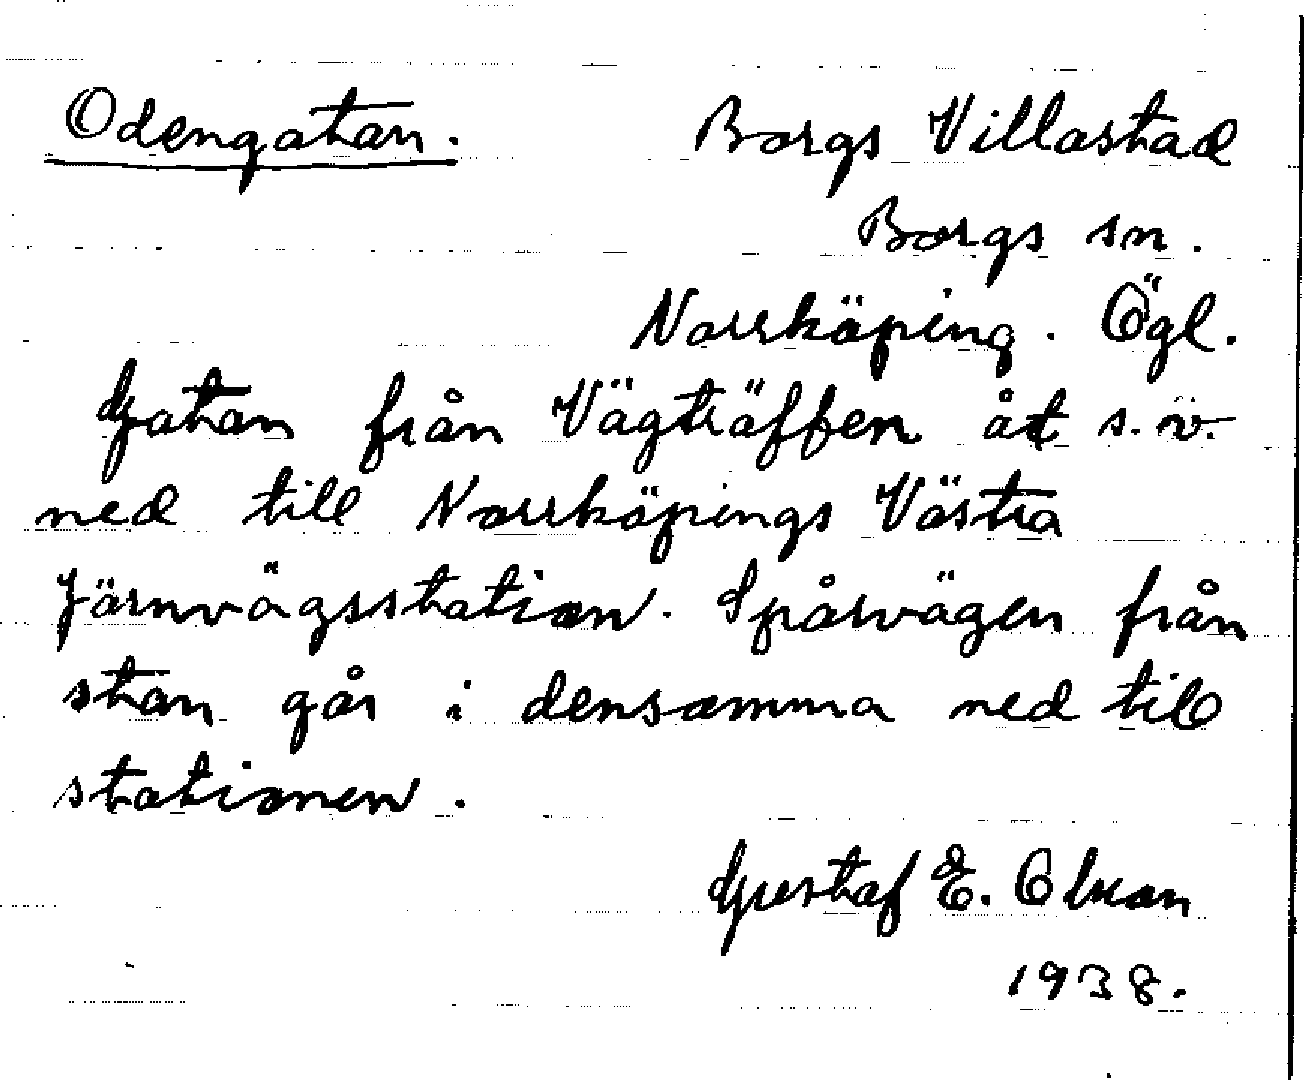 Odengatan. Borgs Villastad
Borgs sn.
Norrköping. Ögl.
Gatan från Vägträffen åt s.v.
ned till Norrköpings Västra
Järnvägsstation. Spårvägen från
stan går i densamma ned till
stationen.
Gustaf E.
1938.